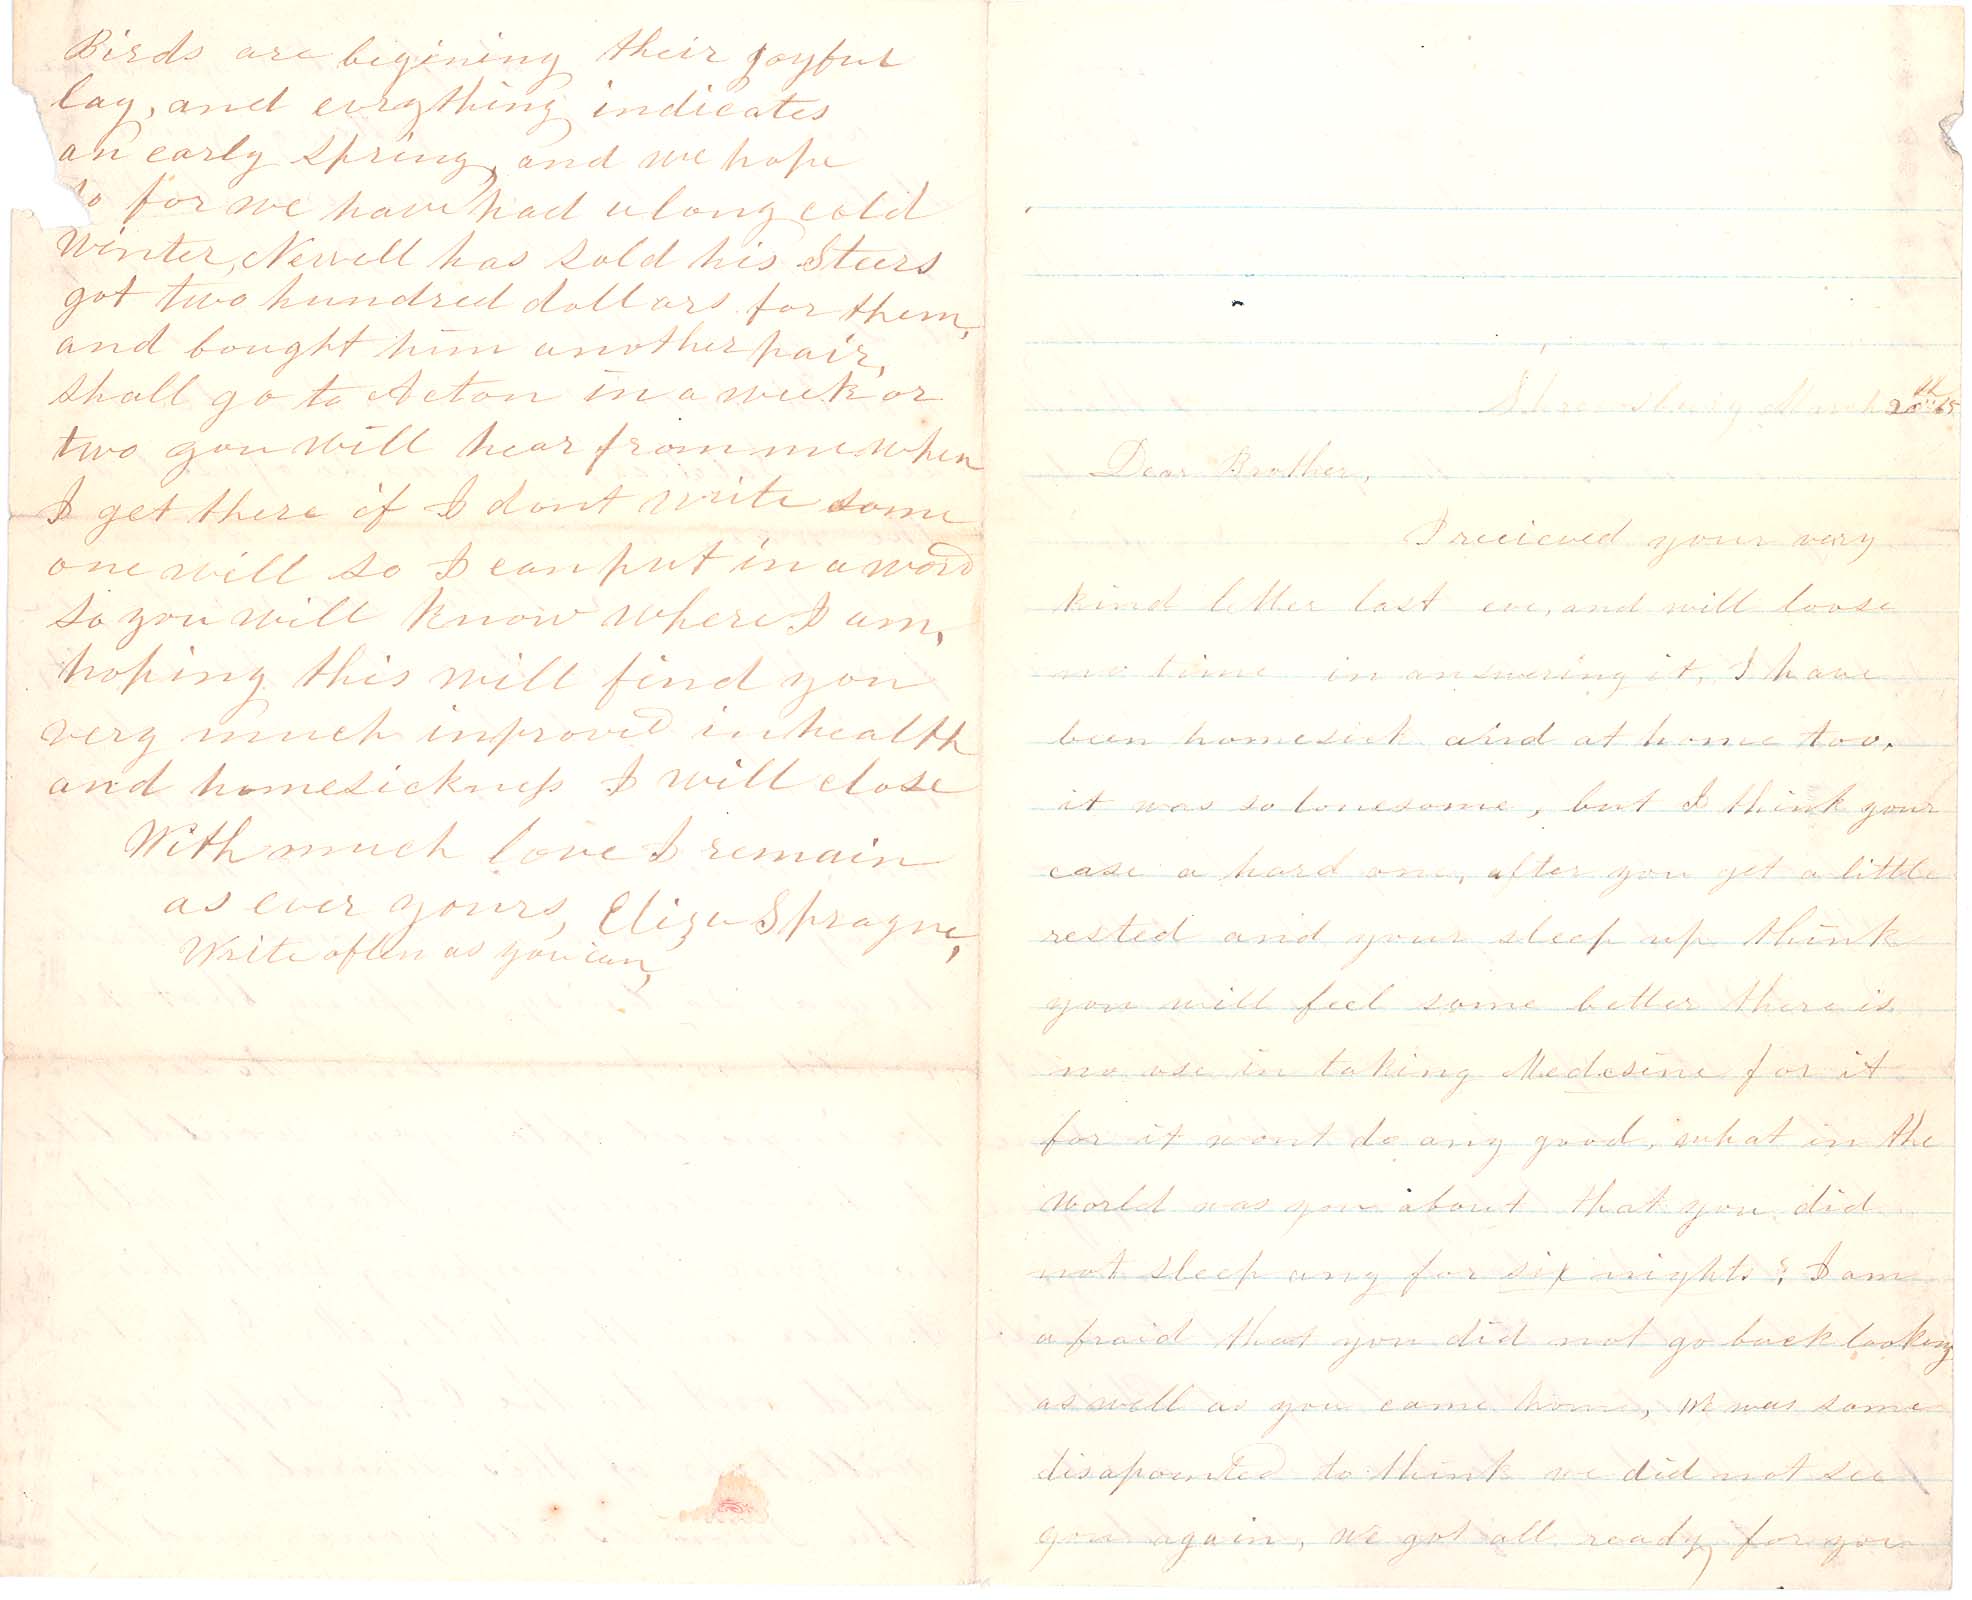 Birds are begining their joyful
lay, and evrything indicates
an early spring, and we hope
so for we have had a long cold
Winter, Newell has sold his Steers
got two hundred dollars for them,
and bought him another pair,
shall go to Acton in a week or
two you will hear from me when
I get there if I dont write some
one will so I can put in a word
so you will know where I am,
hoping this will find you
very much inproved in health
and homesickness I will close
With much love I remain
as ever yours, Eliza Sprague,
Write often as you can,
Shrewsbury March 20th 65
Dear Brother,
I recieved your very
kind letter last eve, and will loose
no time in answering it, I have
been homesick and at home too,
it was so lonesome, but I think your
case a hard one, after you get a little
rested and your sleep up think
you will feel some better there is
no use in taking Medesine for it
for it wont do any good, what in the
world was you about that you did
not sleep any for six nights? I am
afraid that you did not go back looking
as well as you came home, We was some
disapointed to think we did not see
you again, we got all ready for you